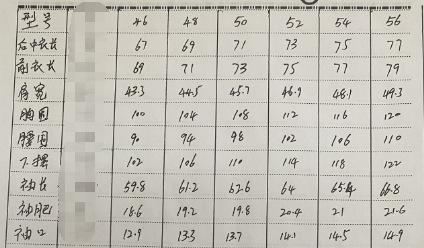 型号 46 48 50 52 54 56
后中衣长 67 69 71 73 75 77
前衣长 69 71 73 75 77 79
肩宽 43.3 44.5 45.7 46.9 48.1 49.3
胸围 100 104 108 112 116 120
腰围 90 94 98 102 106 110
下摆 102 106 110 114 118 122
袖长 59.8 61.2 62.6 64 65.4 66.8
袖肥 18.6 19.2 19.8 20.4 21 21.6
袖口 12.9 13.3 13.7 14.1 14.5 14.9